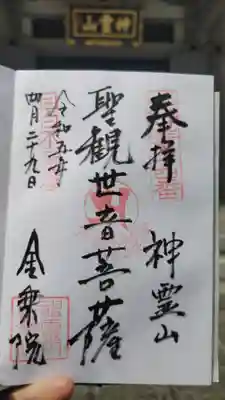 神霊山
奉拝 神霊山
聖観世音菩薩
令和五年
四月二十九日
金乗院